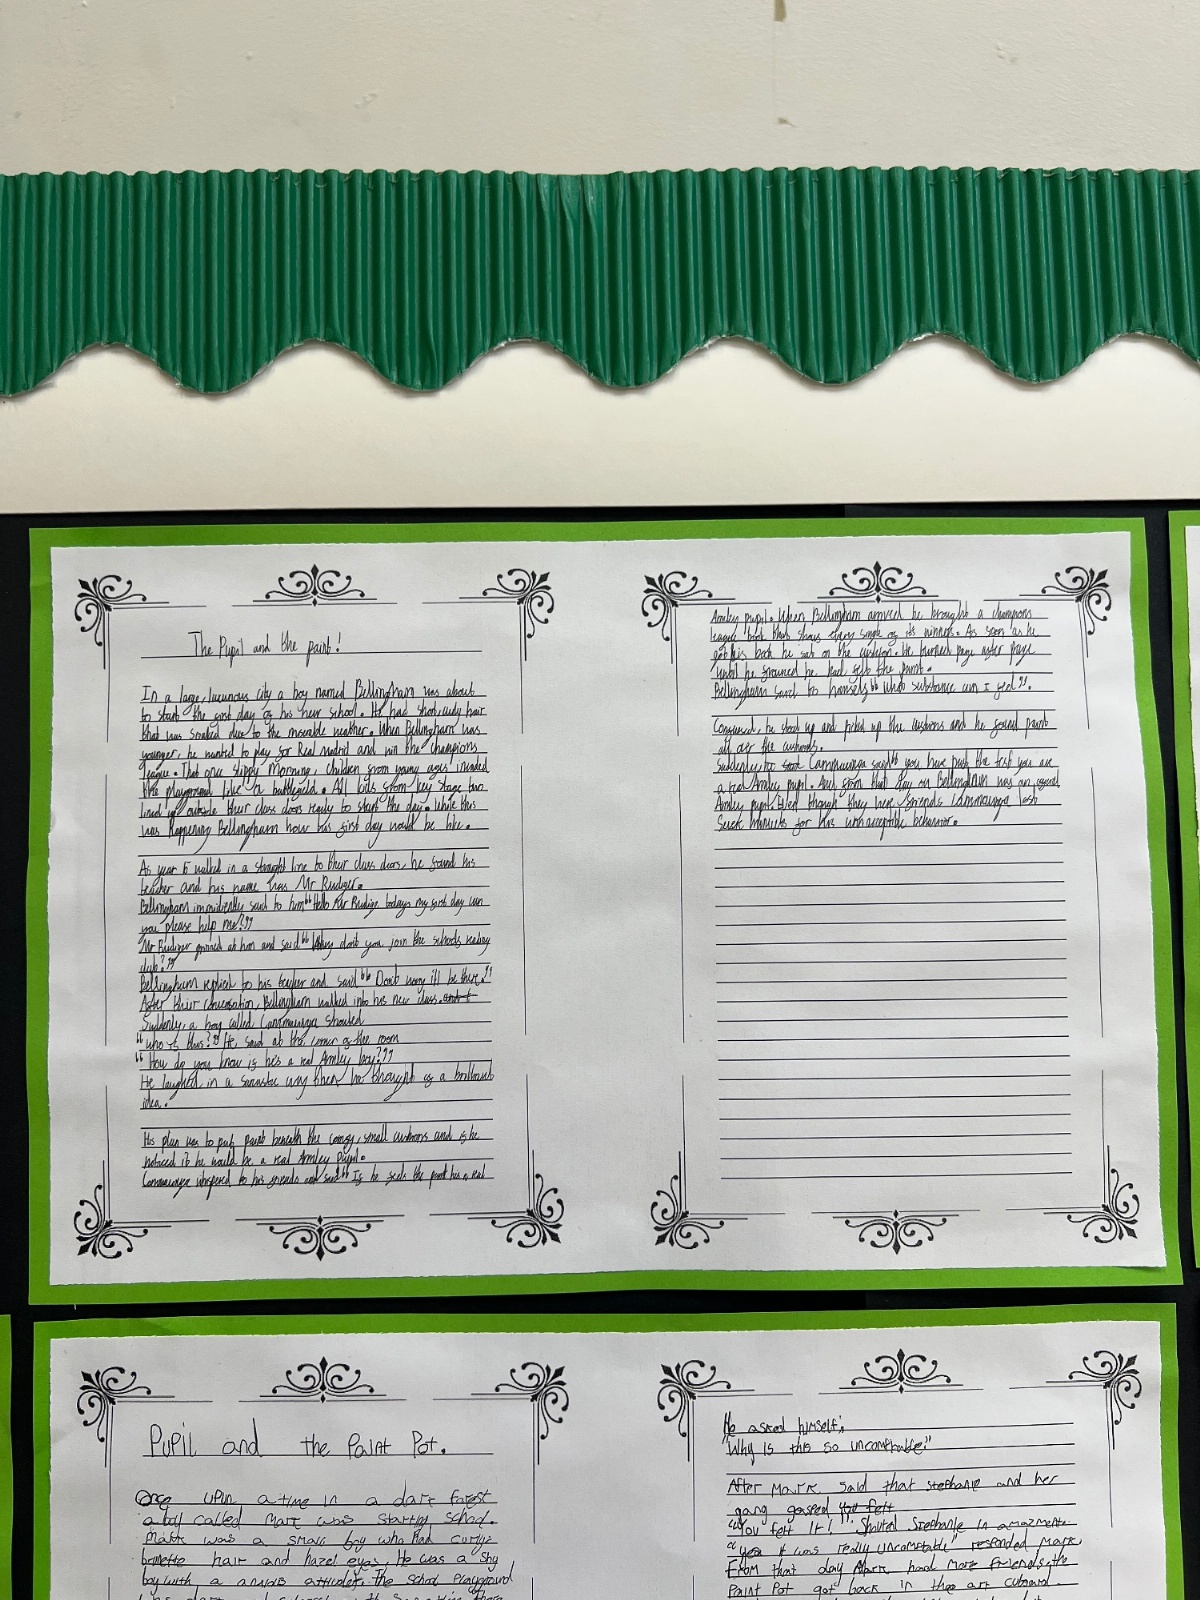 The Pupil and the paint!
In a large, luxurious city a boy named Bellingham was about
to start the first day of his new school. He had short, curly hair
that was soaked due to the miserable weather. When Bellingham was
younger, he wanted to play for Real Madrid and win the champions
league. That one slippy morning, children from young ages invaded
the playground like a battlefield. All kids from key stage two
lined up outside their class doors ready to start the day. While this
was happening Bellingham how his first day would be like.
As year 5 walked in a straight line to their class doors, he found his
teacher and his name was Mr Rudiger.
Bellingham impatiently said to him "Hello Mr Rudiger todays my first day can
you please help me?"
Mr Rudiger grinned at him and said "Why don't you join the schools
club?"
Bellingham replied to his teacher and said "Don't worry ill be there."
After their conversation, Bellingham walked into his new class.
Suddenly, a boy called Cammavinga shouted
"who is this?" He said at the corner of the room
"How do you know if he's a real Armley boy?"
He laughed in a way then he thought of a
idea.
His plan was to put paint beneath the comfy, small cushions and if he
noticed it he would be a real Armley pupil.
Cammavinga whispered to his friends and said "If he feels the paint his a real
Armley pupil. When Bellingham arrived he brought a champions
league book that shows every single of its winners. As soon as he
got his book he sat on the cushion. He turned page after page
until he he had felt the paint.
Bellingham said to himself "What substance can I feel".
Confused, he stood up and picked up the cushions and he found paint
all over the cushions.
Suddenly, Cammavinga said "you have past the test you are
a real Armley pupil. And from that day on Bellingham was an
Armley pupil. Even though they were friends Cammavinga lost
minutes for his unnacceptible behavior.
Pupil and the Paint Pot.
Once upon a time in a dark forest
a boy called Mark was starting school.
Mark was a small boy who had curly
hair and hazel eyes. He was a shy
boy with a The school playground
He asked himself;
"Why is this so uncomftable?"
After Mark said that Stephanie and her
gang gasped you felt
"You felt it!" Shouted Stephanie in
"yea it was really uncomftable" responded Mark.
From that day Mark had more friends, the
Paint Pot got back in the art cuboard.